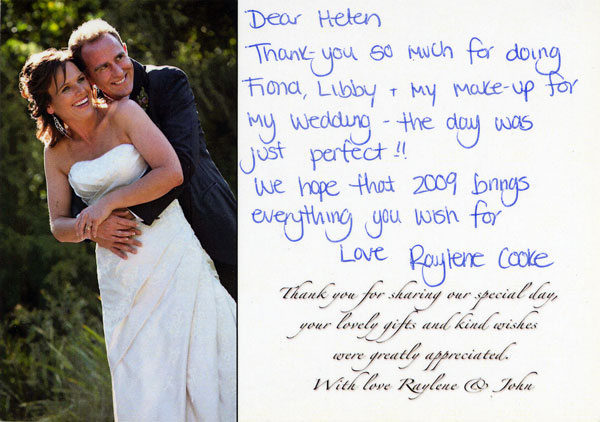 Dear Helen
Thank-you so much for doing
Fiona, Libby + my make-up for
my wedding - the day was
just perfect!!
We hope that 2009 brings
everything you wish for
Love Raylene Cooke
Thank you for sharing our special day,
your lovely gifts and kind wishes
were greatly appreciated.
With love Raylene & John